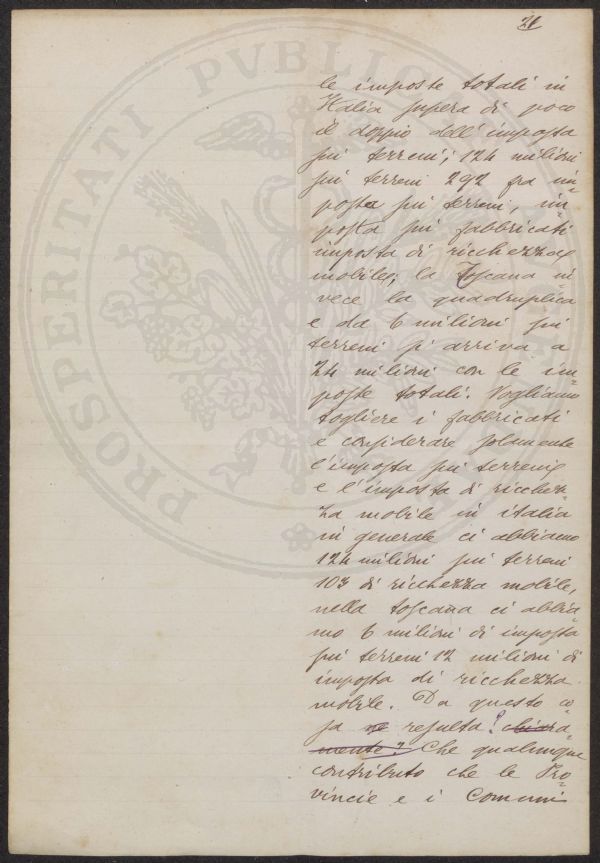 21
le imposte totali in
Italia supera di poco
il doppio dell'imposta
sui terreni; 124 milioni
sui terreni 292 fra im=
posta sui terreni, im=
posta sui fabbricati
imposta di ricchezza
mobile; la Toscana in=
vece la quadruplica
e da 6 milioni sui
terreni si arriva a
24 milioni con le im=
poste totali. Vogliamo
togliere i fabbricati
e considerare solamente
l'imposta sui terreni
e l'imposta di ricchez=
za mobile in italia
in generale ci abbiamo
124 milioni sui terreni
103 di ricchezza mobile,
nella toscana ci abbia=
mo 6 milioni di imposta
sui terreni 12 milioni di
imposta di ricchezza
mobile. Da questo co=
sa ne resulta? chiara=
mente? Che qualunque
contributo che le Pro=
vincie e i Comuni
PROSPERITATI PVBLIC